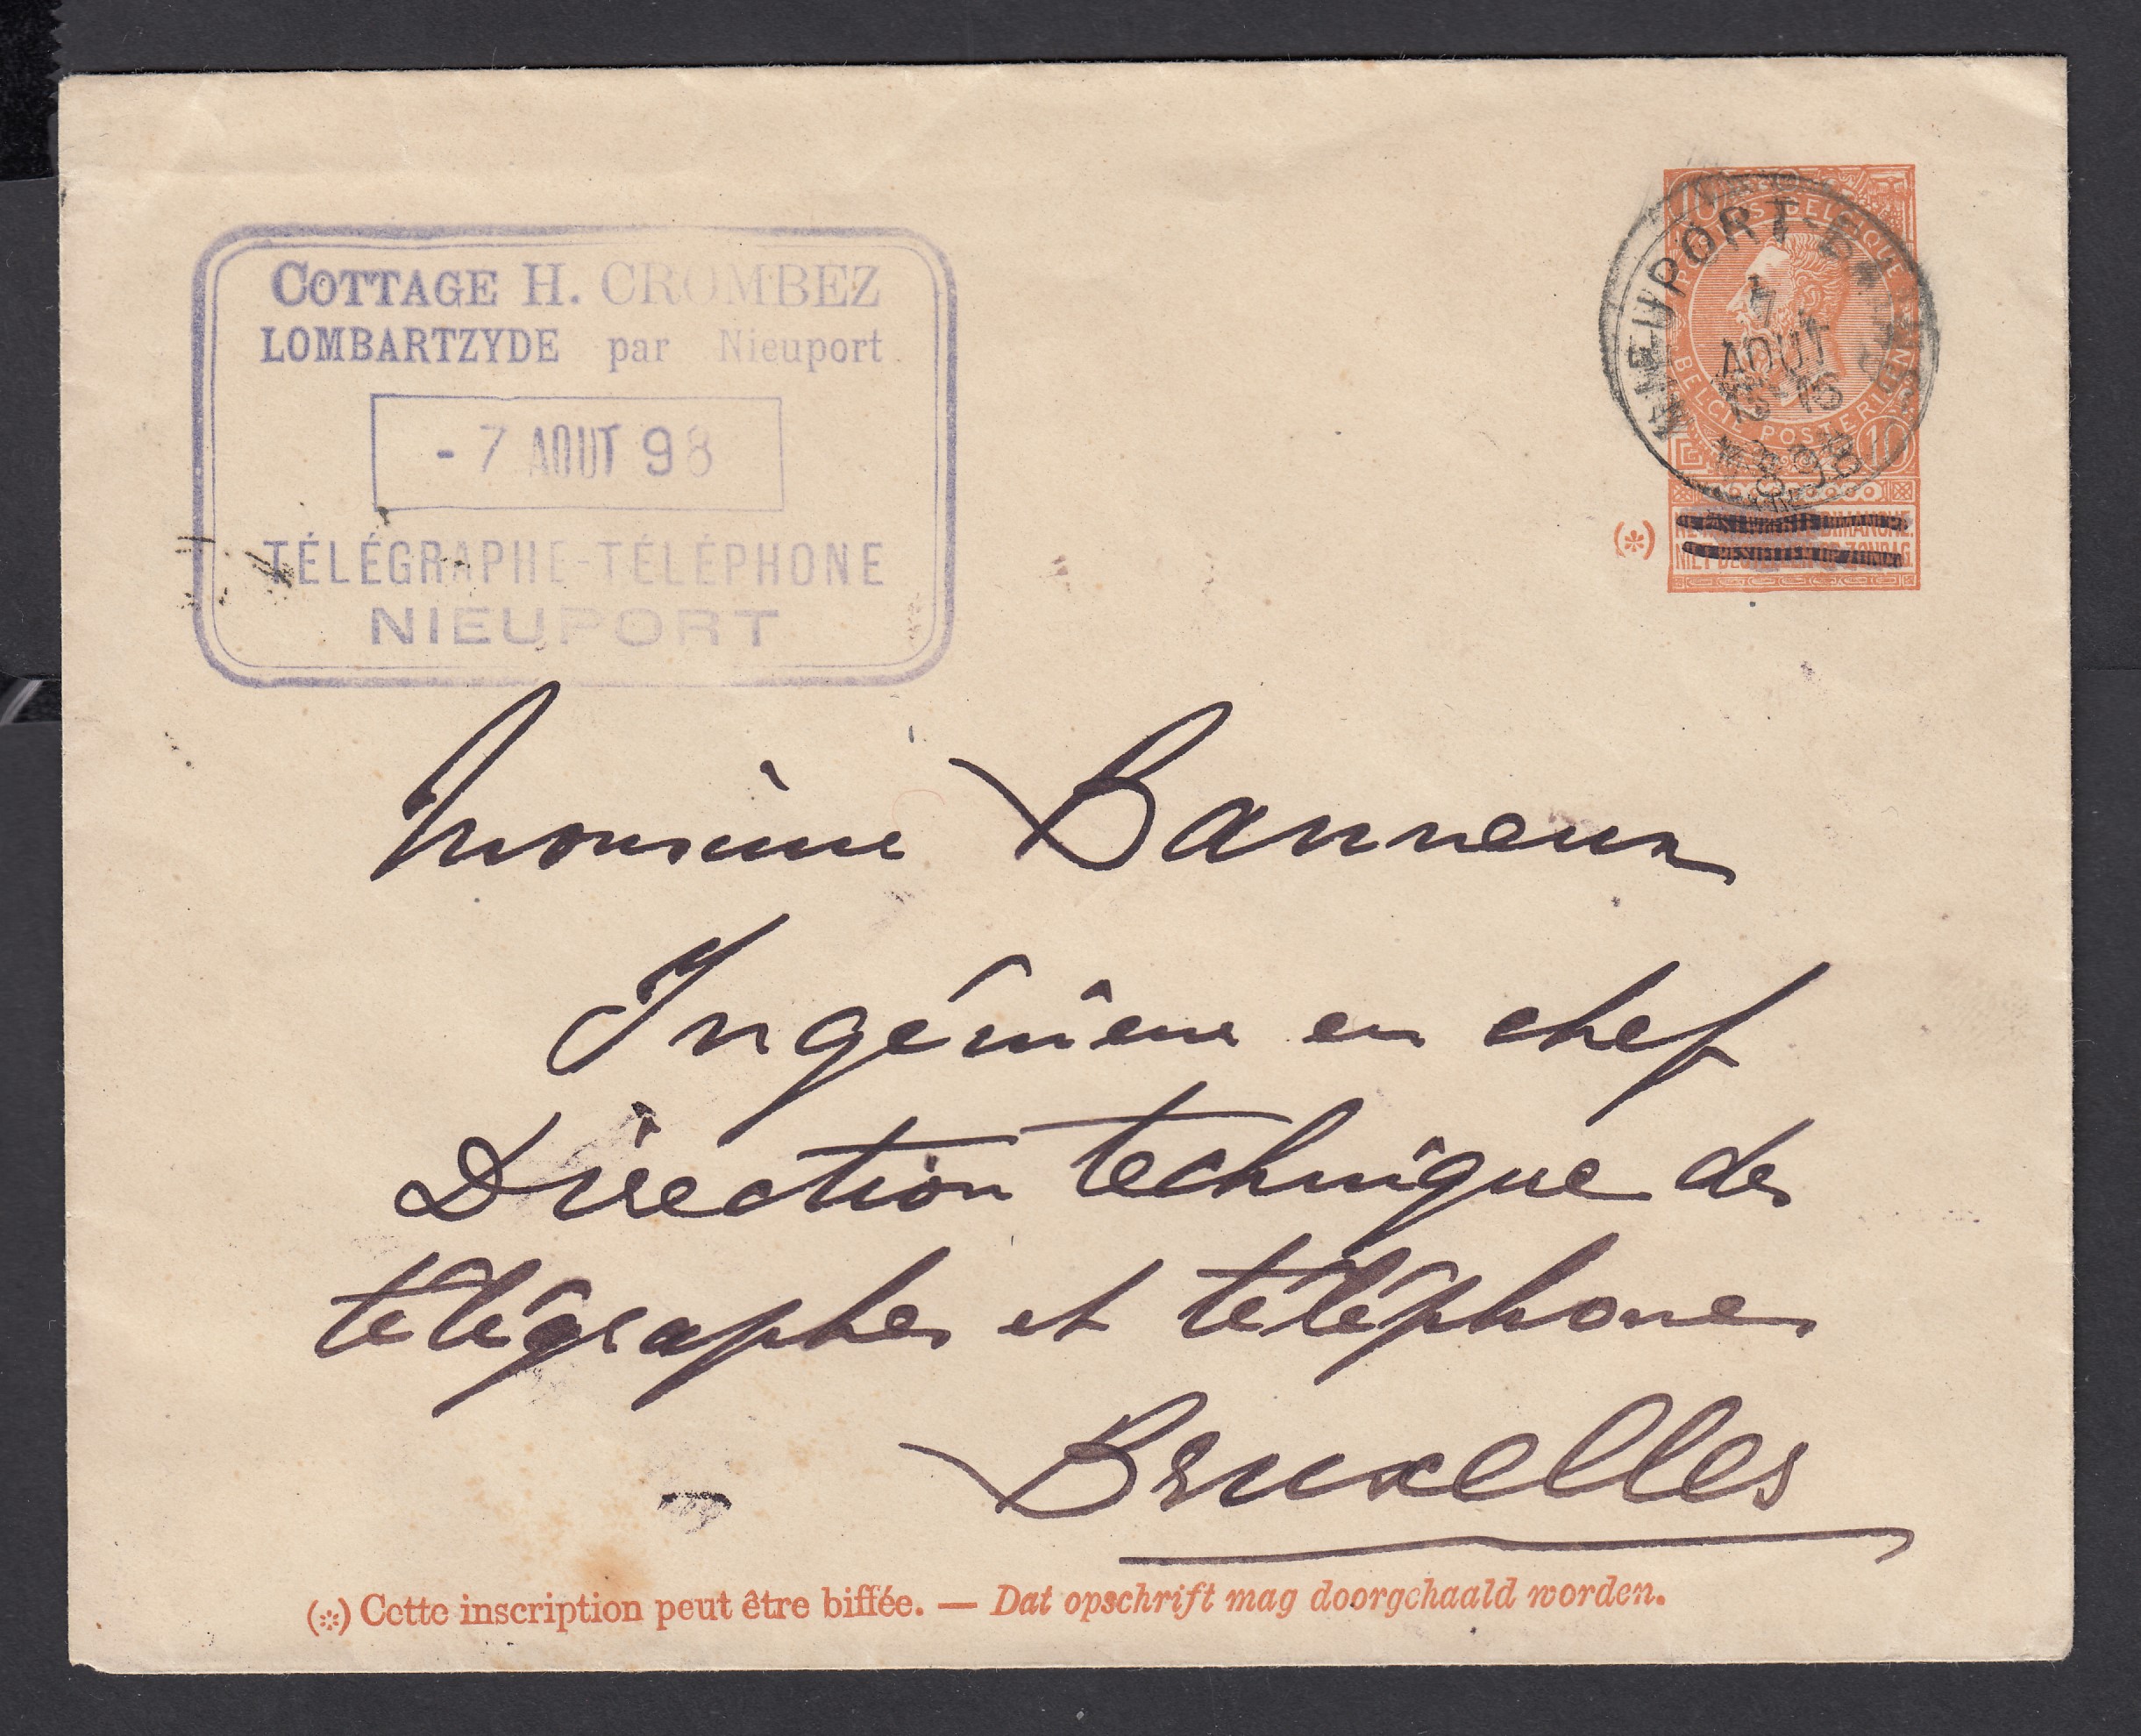 COTTAGE H. CROMBEZ
LOMBARTZYDE par Nieuport
- 7 AOUT 98
TÉLÉGRAPHE-TÉLÉPHONE
NIEUPORT
NIEUPORT-BAINS
7
AOUT
1898
10
POSTES BELGIQUE 10 CENT
BELGIË POSTERIJEN 10
NE PAS LIVRER LE DIMANCHE.
NIET BESTELLEN OP ZONDAG
(*)
Monsieur Banneux
Ingénieur en chef
Direction technique des
télégraphes et téléphones
Bruxelles
(*) Cette inscription peut être biffée. — Dat opschrift mag doorgehaald worden.